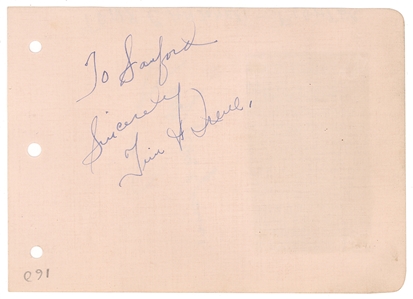 To Sanford
Sincerely
Tim & Irene.